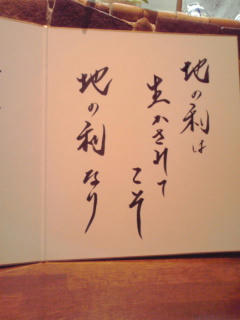 地の利は
生かされて
こそ
地の利なり